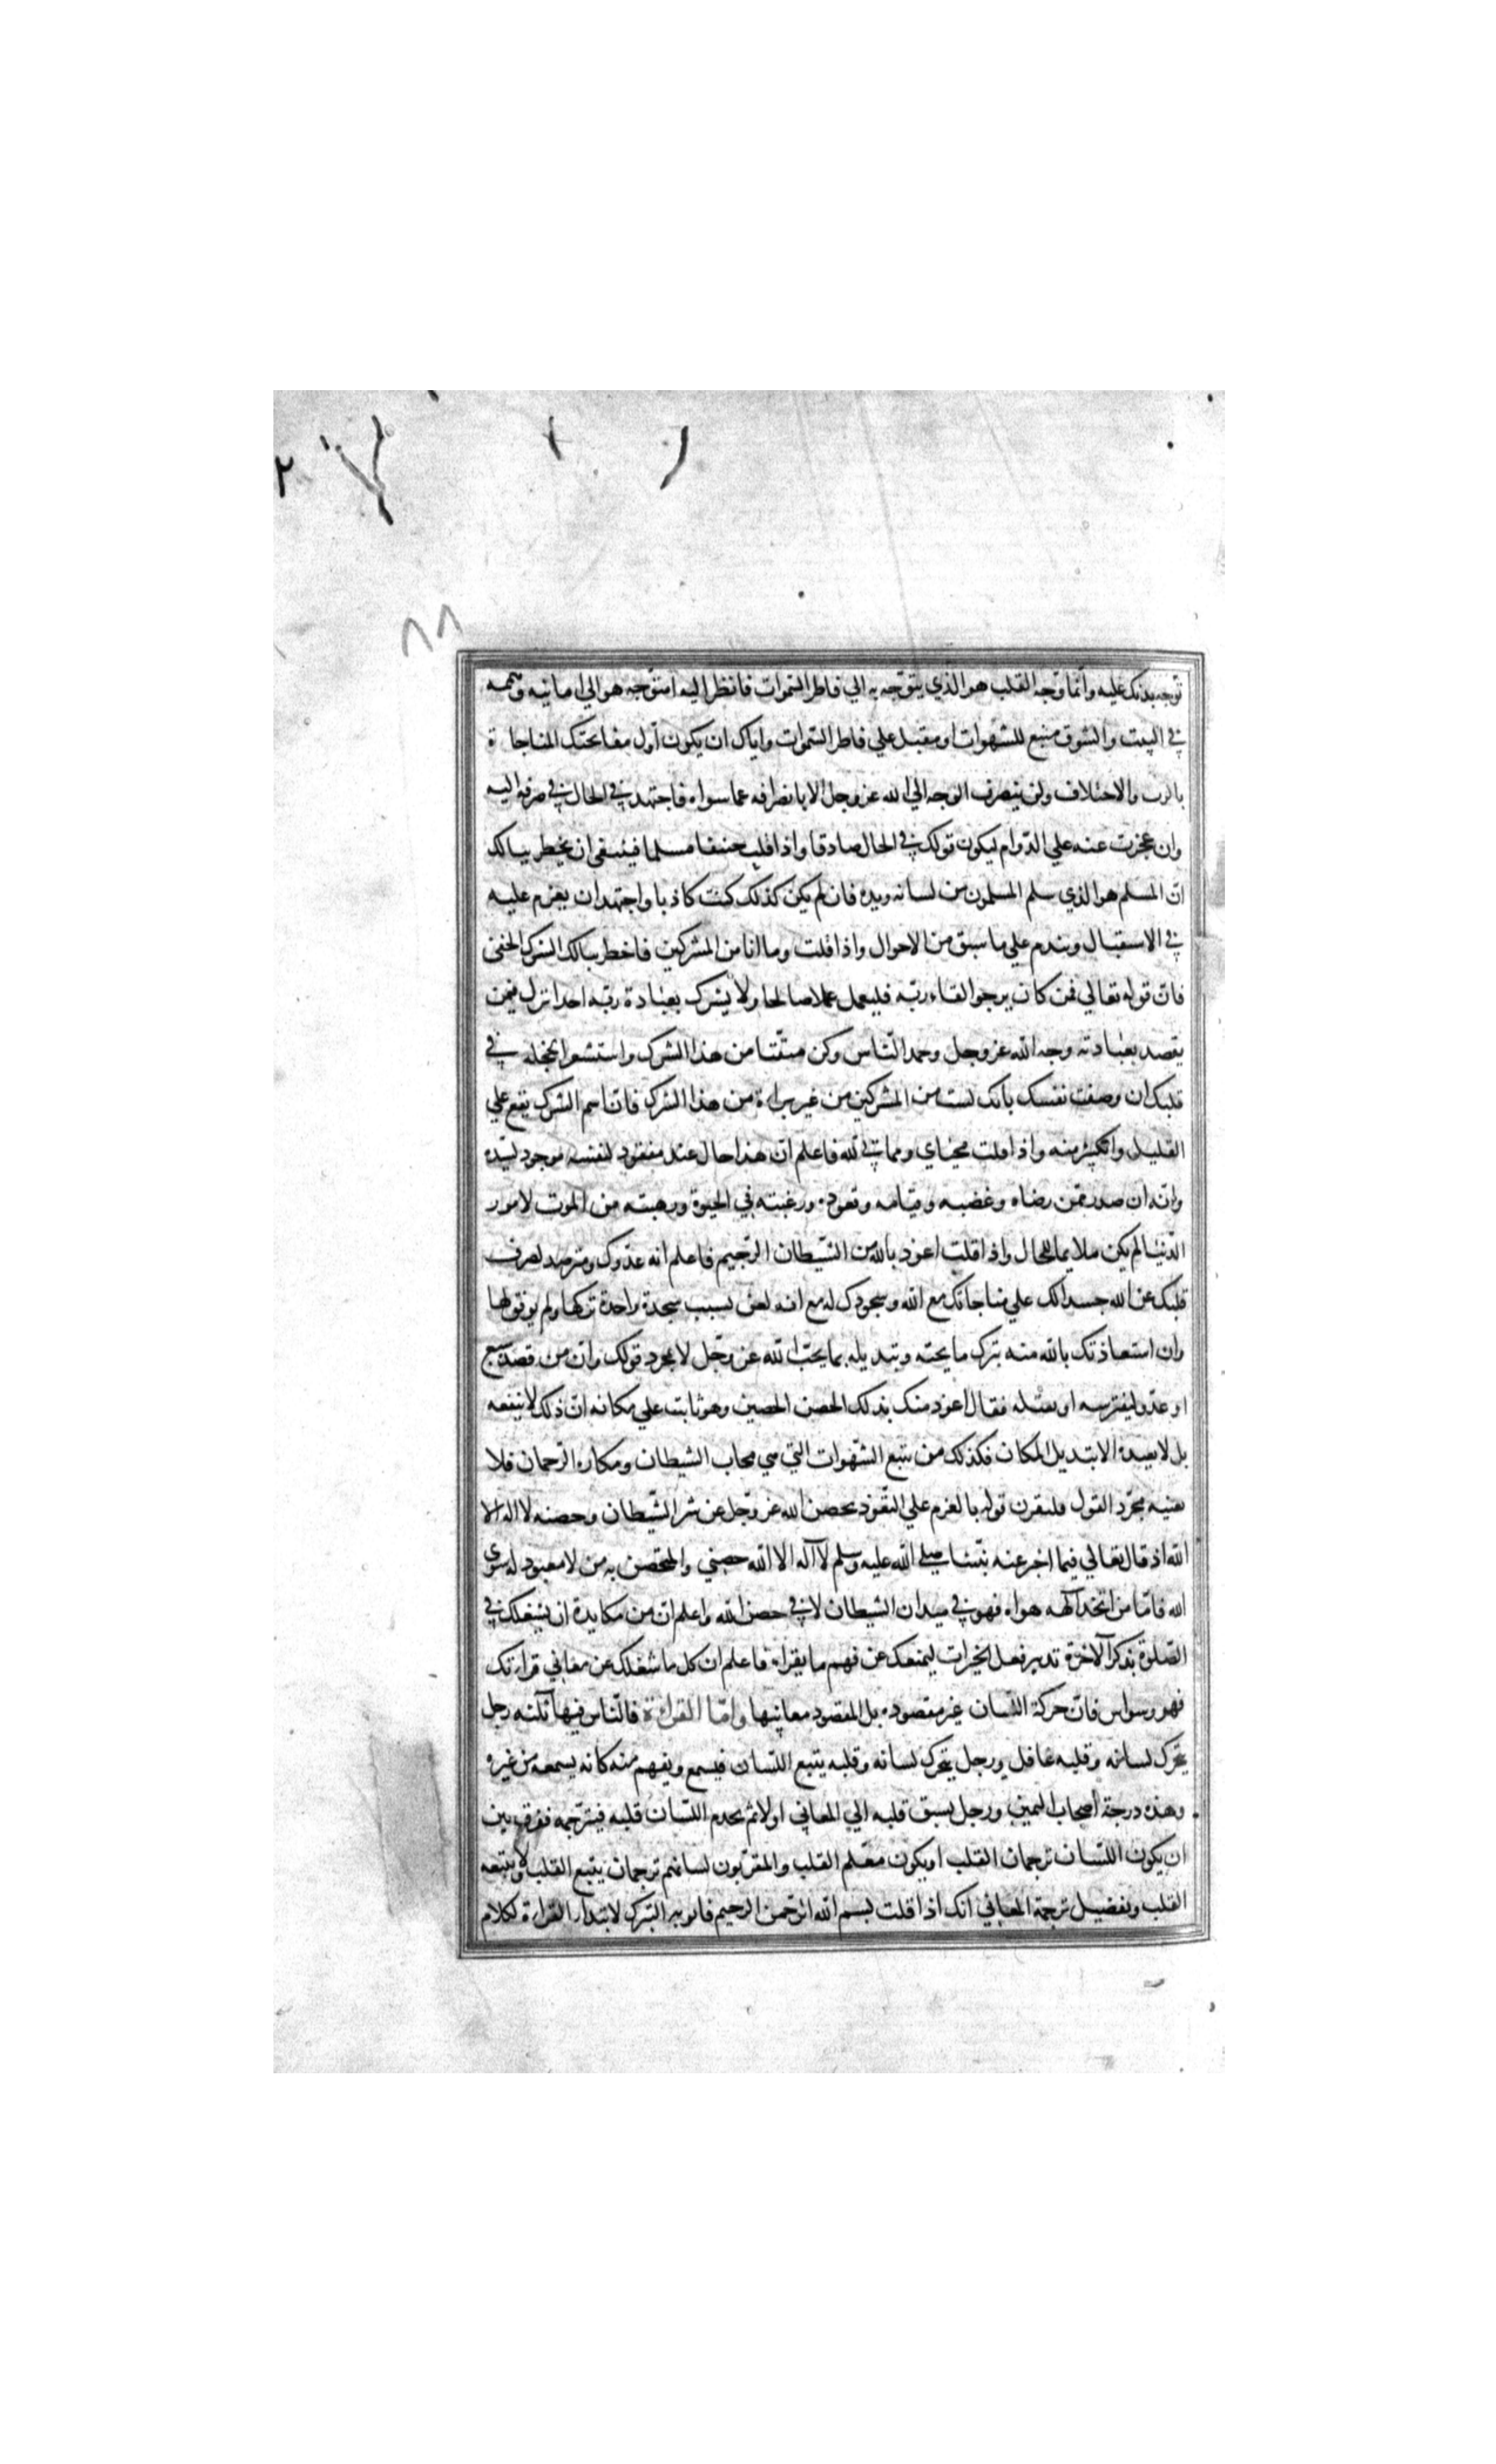 ٢
٨٨
توجه بدنك عليه وانما وجه القلب هو الذي يتوجه به الي فاطر السموات فانظر اليه امتوجه هو الي امانيه وهمه
في البيت والسوق متبع للشهوات او مقبل علي فاطر السموات واياك ان يكون اول مفاتحتك المناجاة
بالكذب والاختلاف ولن ينصرف الوجه الي الله عز وجل الا بانصرافه عما سواه فاجتهد في الحال في صرفه اليه
وان عجزت عنه علي الدوام ليكون قولك في الحال صادقا واذا قلت حنيفا مسلما فينبغي ان يخطر ببالك
ان المسلم هو الذي سلم المسلمون من لسانه ويده فان لم يكن كذلك كنت كاذبا واجتهد ان يعزم عليه
في الاستقبال ويندم علي ما سبق من الاحوال واذا قلت وما انا من المشركين فاخطر ببالك الشرك الخفي
فان قوله تعالي فمن كان يرجوا لقاء ربه فليعمل عملا صالحا ولا يشرك بعبادة ربه احدا نزل فيمن
يقصد بعبادته وجه الله عز وجل وحمد الناس وكن متقيا من هذا الشرك واستشعر الخجله في
قلبك ان وصفت نفسك بانك لست من المشركين من غير براءة من هذا الشرك فان اسم الشرك يقع علي
القليل والكثير منه واذا قلت محياي ومماتي لله فاعلم ان هذا حال عبد مفقود لنفسه موجود لسيده
وانه ان صدر ممن رضاه وغضبه وقيامه وقعوده ورغبته في الحيوة ورهبته من الموت لامور
الدنيا لم يكن ملايما للحال واذا قلت اعوذ بالله من الشيطان الرجيم فاعلم انه عدوك ومترصد لصرف
قلبك عن الله جسدا لك علي مناجاتك مع الله وسجودك له مع انه لعن بسبب سجدة واحدة تركها ولم يوفق لها
وان استعاذتك بالله منه بترك ما يحبه وتبديله بما يحب الله عز وجل لا بمجرد قولك وان من قصده سبع
او عدو ليفترسه او يقتله فقال اعوذ منك بذلك الحصن الحصين وهو ثابت علي مكانه ان ذلك لا ينفعه
بل لا يعيذه الا بتبديل المكان فكذلك من يتبع الشهوات التي هي محاب الشيطان ومكاره الرحمان فلا
يغنيه مجرد القول فليقرن قوله بالعزم علي التعوذ بحصن الله عز وجل عن شر الشيطان وحصنه لا اله الا
الله اذ قال تعالي فيما اخبر عنه نبينا صلي الله عليه وسلم لا اله الا الله حصني والمتحصن به من لا معبود له سوي
الله فاما من اتخذ الهه هواه فهو في ميدان الشيطان لا في حصن الله واعلم ان من مكايده ان يشغلك في
الصلوة بذكر الاخرة تدبير فعل الخيرات ليمنعك عن فهم ما يقراء فاعلم ان كل ما شغلك عن معاني قراءتك
فهو وسواس فان حركة اللسان غير مقصوده بل المقصود معانيها واما القراءة فالناس فيها ثلثه رجل
يتحرك لسانه وقلبه غافل ورجل يتحرك لسانه وقلبه يتبع اللسان فيسمع ويفهم منه كانه يسمعه من غيره
وهذه درجة اصحاب اليمين ورجل يسبق قلبه الي المعاني اولا ثم يخدم اللسان قلبه فيترجمه ففرق بين
ان يكون اللسان ترجمان القلب او يكون معلم القلب والمقربون لسانهم ترجمان يتبع القلب ولا يتبعه
القلب وتفضيل ترجمة المعاني انك اذا قلت بسم الله الرحمن الرحيم فانو به التبرك لابتداء القراءة لكلام